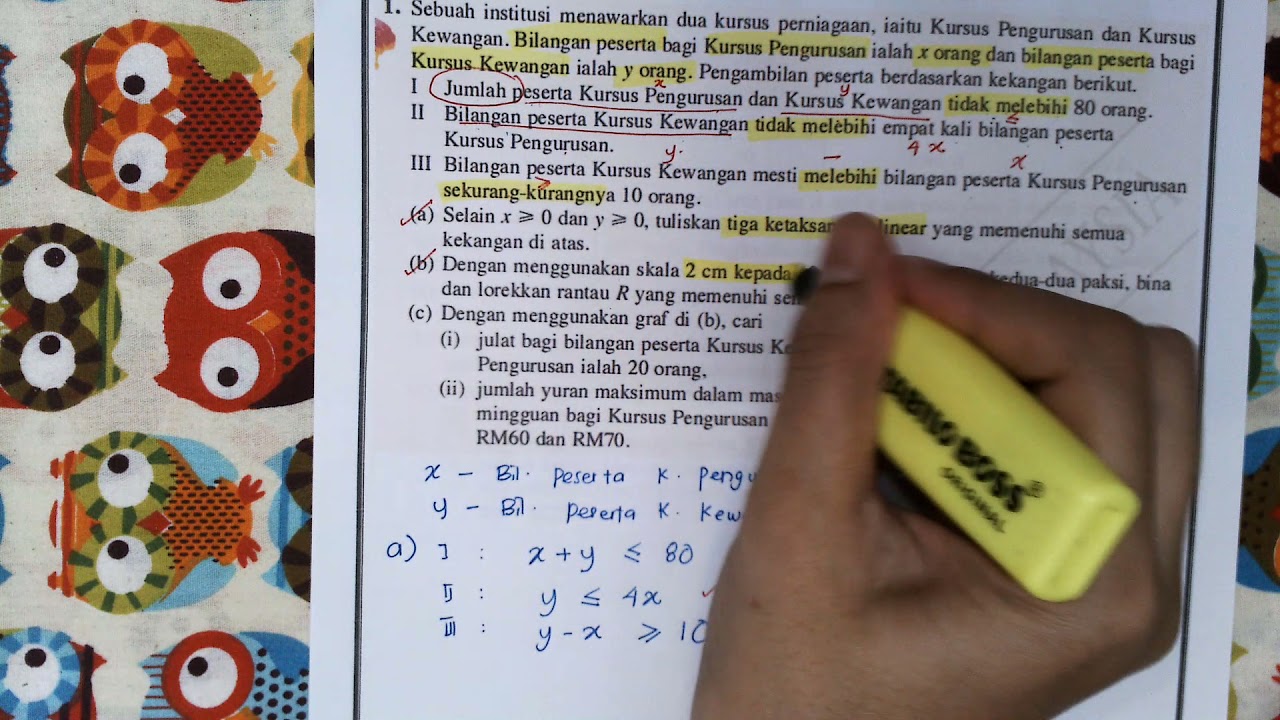 1. Sebuah institusi menawarkan dua kursus perniagaan, iaitu Kursus Pengurusan dan Kursus
Kewangan. Bilangan peserta bagi Kursus Pengurusan ialah x orang dan bilangan peserta bagi
Kursus Kewangan ialah y orang. Pengambilan peserta berdasarkan kekangan berikut.
x y
I Jumlah peserta Kursus Pengurusan dan Kursus Kewangan tidak melebihi 80 orang.
II Bilangan peserta Kursus Kewangan tidak melebihi empat kali bilangan peserta
Kursus Pengurusan.
y. 4x x
III Bilangan peserta Kursus Kewangan mesti melebihi bilangan peserta Kursus Pengurusan
sekurang-kurangnya 10 orang.
(a) Selain x ⩾ 0 dan y ⩾ 0, tuliskan tiga linear yang memenuhi semua
kekangan di atas.
(b) Dengan menggunakan skala 2 cm kepada kedua-dua paksi, bina
dan lorekkan rantau R yang memenuhi
(c) Dengan menggunakan graf di (b), cari
(i) julat bagi bilangan peserta Kursus
Pengurusan ialah 20 orang,
(ii) jumlah yuran maksimum dalam
mingguan bagi Kursus Pengurusan
RM60 dan RM70.
x - Bil. peserta K.
y - Bil. peserta K.
a) I : x + y ≤ 80
II : y ≤ 4x
III : y - x ⩾ 10
STABILO BOSS®
ORIGINAL